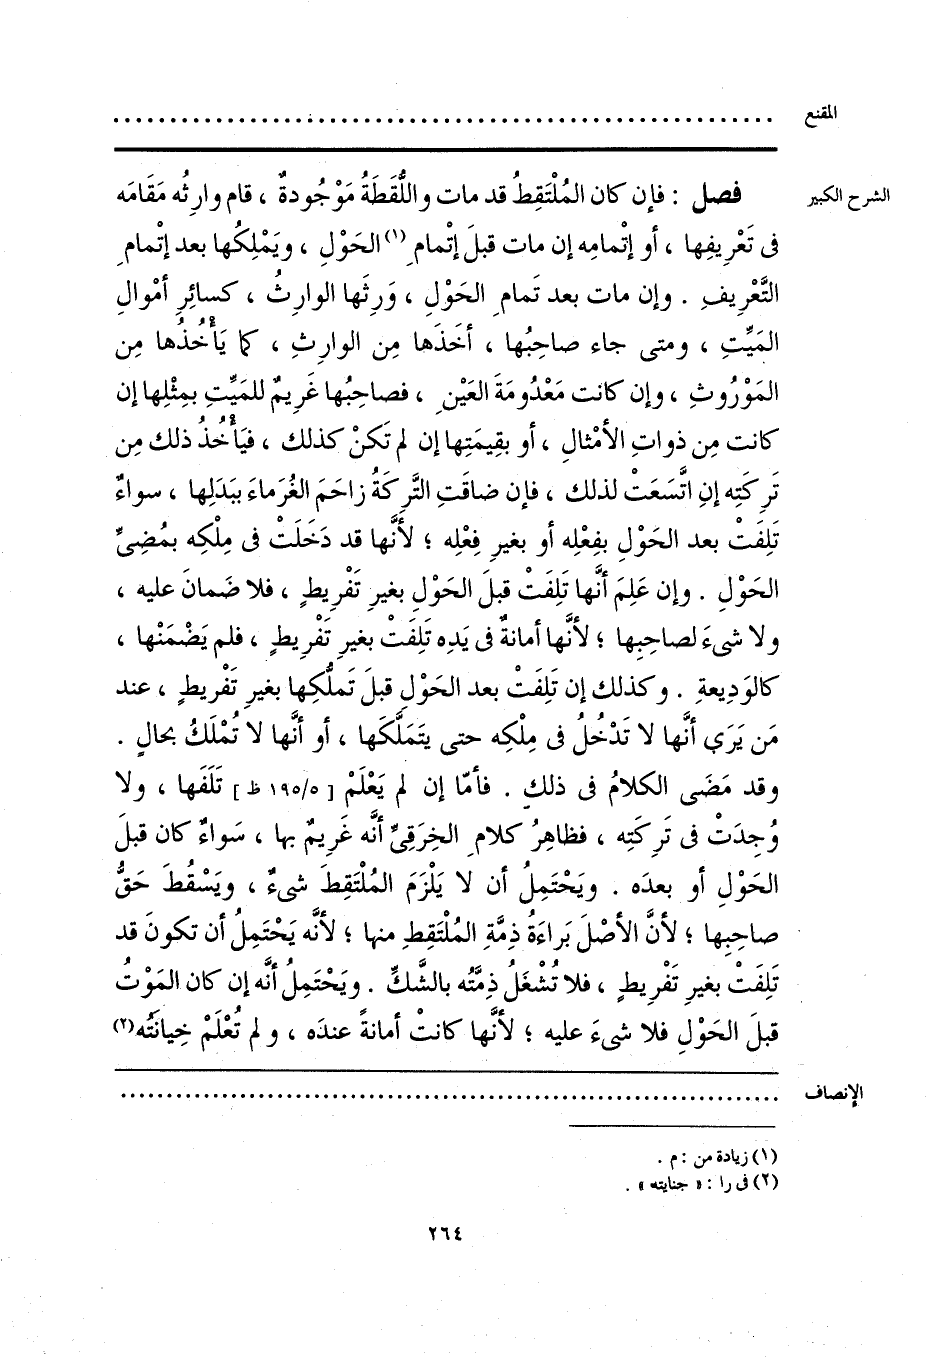 المقنع ............................................................
الشرح الكبير فصل : فإن كان المُلْتَقِطُ قد مات واللُّقَطَةُ مَوْجُودةٌ ، قام وارِثُه مَقَامَه
فى تَعْرِيفِها ، أو إتْمامِه إن مات قبلَ إتْمامِ (١) الحَوْلِ ، ويَمْلِكُها بعد إتْمامِ
التَّعْرِيفِ . وإن مات بعد تَمامِ الحَوْلِ ، وَرِثَها الوارِثُ ، كسائِرِ أمْوالِ
المَيِّتِ ، ومتى جاء صاحِبُها ، أخَذَها مِن الوارِثِ ، كما يَأْخُذُها مِن
المَوْرُوثِ ، وإن كانت مَعْدُومَةَ العَيْنِ ، فصاحِبُها غَرِيمٌ للمَيِّتِ بمِثْلِها إن
كانت مِن ذواتِ الأمْثالِ ، أو بقِيمَتِها إن لم تَكنْ كذلك ، فيَأْخُذُ ذلك مِن
تَرِكَتِه إنِ اتَّسَعَتْ لذلك ، فإن ضاقَتِ التَّرِكَةُ زاحَمَ الغُرَماءَ ببَدَلِها ، سواءٌ
تَلِفَتْ بعد الحَوْلِ بفِعْلِه أو بغيرِ فِعْلِه ؛ لأنَّها قد دَخَلَتْ فى مِلْكِه بمُضِىِّ
الحَوْلِ . وإن عَلِمَ أنَّها تَلِفَتْ قبلَ الحَوْلِ بغيرِ تَفْرِيطٍ ، فلا ضَمانَ عليه ،
ولا شىءَ لصاحِبِها ؛ لأنَّها أمانةٌ فى يَدِه تَلِفَتْ بغيرِ تَفْرِيطٍ ، فلم يَضْمَنْها ،
كالوَدِيعةِ . وكذلك إن تَلِفَتْ بعد الحَوْلِ قبلَ تَملُّكِها بغيرِ تَفْرِيطٍ ، عند
مَن يَرَى أنَّها لا تَدْخُلُ فى مِلْكِه حتى يتَمَلَّكَها ، أو أنَّها لا تُمْلَكُ بحالٍ .
وقد مَضَى الكلامُ فى ذلك . فأمّا إن لم يَعْلَمْ [ ١٩٥/٥ ظ ] تَلَفَها ، ولا
وُجِدَتْ فى تَرِكَتِه ، فظاهِرُ كلامِ الخِرَقِىِّ أنَّه غَرِيمٌ بها ، سَواءٌ كان قبلَ
الحَوْلِ أو بعدَه . ويَحْتَمِلُ أن لا يَلْزَمَ المُلْتَقِطَ شىءٌ ، ويَسْقُطَ حَقُّ
صاحِبِها ؛ لأنَّ الأصْلَ بَراءَةُ ذِمَّةِ المُلْتَقِطِ منها ؛ لأنَّه يَحْتَمِلُ أن تكونَ قد
تَلِفَتْ بغيرِ تَفْرِيطٍ ، فلا تُشْغَلُ ذِمَّتُه بالشَّكِّ . ويَحْتَمِلُ أنَّه إن كان المَوْتُ
قبلَ الحَوْلِ فلا شىءَ عليه ؛ لأنَّها كانتْ أمانةً عندَه ، ولم تُعْلَمْ خِيانَتُه (٢)
الإنصاف ............................................................
(١) زيادة من : م .
(٢) فى را : « جنايته » .
٢٦٤